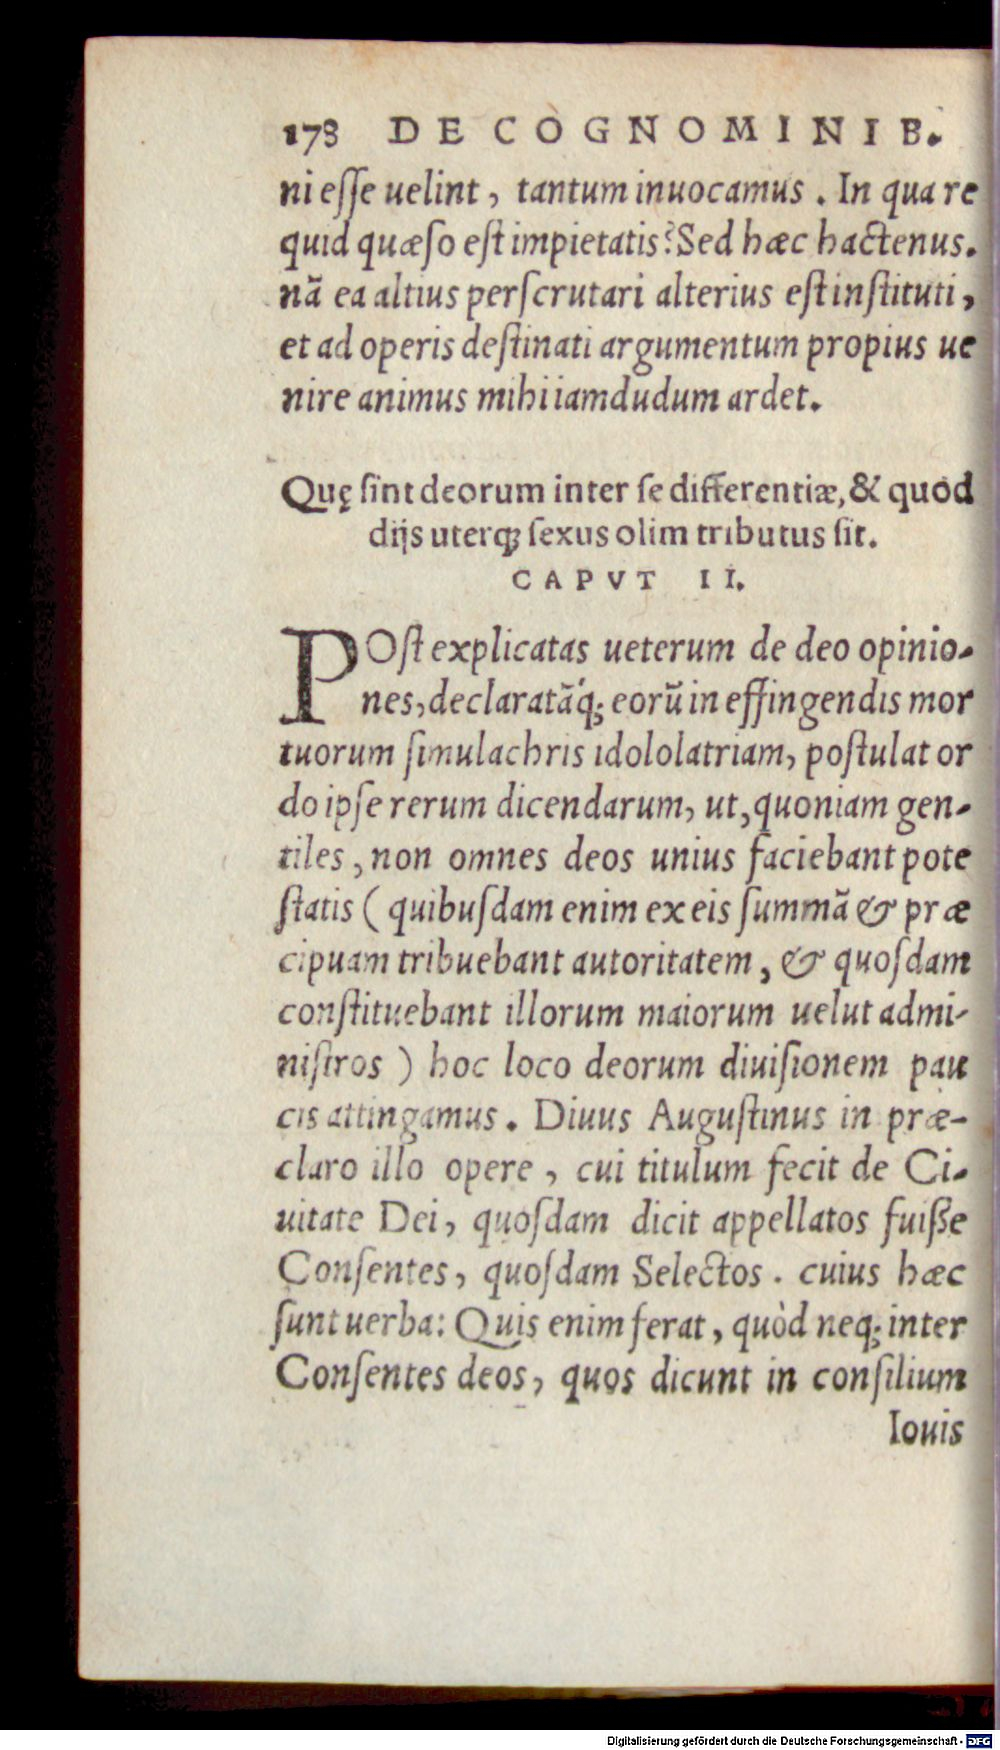 178 DE COGNOMINIB.
ni eſſe uelint, tantum inuocamus. In qua re
quid quæſo eſt impietatis? Sed hæc hactenus.
nã ea altius perſcrutari alterius eſt inſtituti,
et ad operis deſtinati argumentum propius ue
nire animus mihi iamdudum ardet.
Quę ſint deorum inter ſe differentiæ, & quòd
dijs uterq; ſexus olim tributus ſit.
CAPVT II.
POſt explicatas ueterum de deo opinio-
nes, declaratãq́; eorũ in effingendis mor
tuorum ſimulachris idololatriam, poſtulat or
do ipſe rerum dicendarum, ut, quoniam gen-
tiles, non omnes deos unius faciebant pote
ſtatis ( quibuſdam enim ex eis ſummã & præ
cipuam tribuebant autoritatem, & quoſdam
conſtituebant illorum maiorum uelut admi-
niſtros ) hoc loco deorum diuiſionem pau
cis attingamus. Diuus Auguſtinus in præ-
claro illo opere, cui titulum fecit de Ci-
uitate Dei, quoſdam dicit appellatos fuiſſe
Conſentes, quoſdam Selectos. cuius hæc
ſunt uerba: Quis enim ferat, quòd neq; inter
Conſentes deos, quos dicunt in conſilium
Iouis
Digitalisierung gefördert durch die Deutsche Forschungsgemeinschaft - DFG